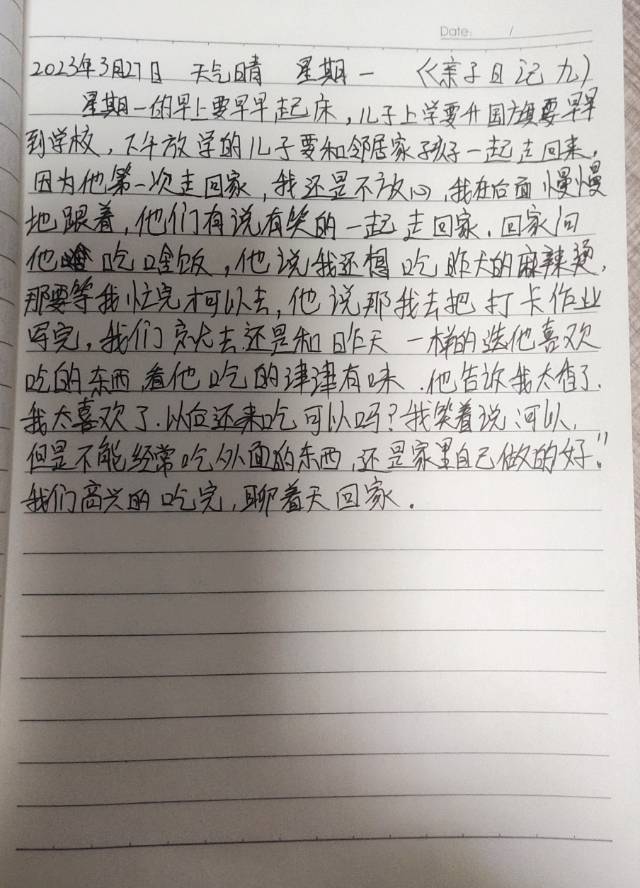 Date: /
2023年3月27日 天气晴 星期一 《亲子日记九》
星期一的早上要早早起床,儿子上学要升国旗要早早
到学校,下午放学的儿子要和邻居家孩子一起走回来,
因为他第一次走回家,我还是不放心,我在后面慢慢
地跟着,他们有说有笑的一起走回家.回家问
他吃啥饭,他说我还想吃昨天的麻辣烫,
那要等我忙完才可以去,他说那我去把打卡作业
写完,我们就去还是和昨天一样的选他喜欢
吃的东西,看他吃的津津有味.他告诉我太香了.
我太喜欢了.以后还来吃可以吗?我笑着说:可以,
但是不能经常吃外面的东西,还是家里自己做的好."
我们高兴的吃完,聊着天回家.